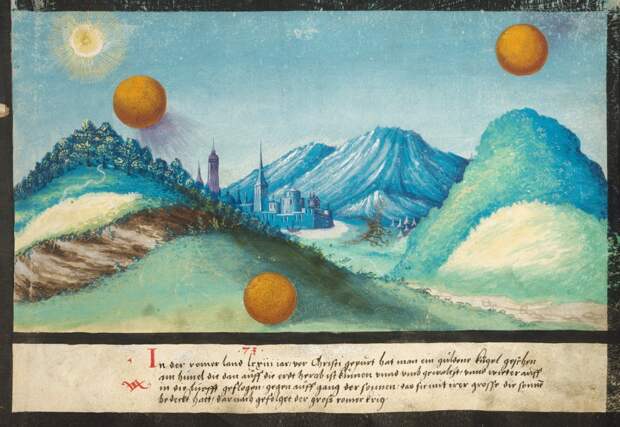 ·73·
In der romer land lxxiii iar vor Christi gepurt hat man ein guldene kugel gesehen
am himel die dan auff die erdt herab ist kumen vnnd vmb gewaltzt, vnnd wider auff
in die lufft geflogen, gegen auffgang der sonnen, das sie mit irer grosse die sonne
bedeckt hatt, darnach gefolget der groß romer krig